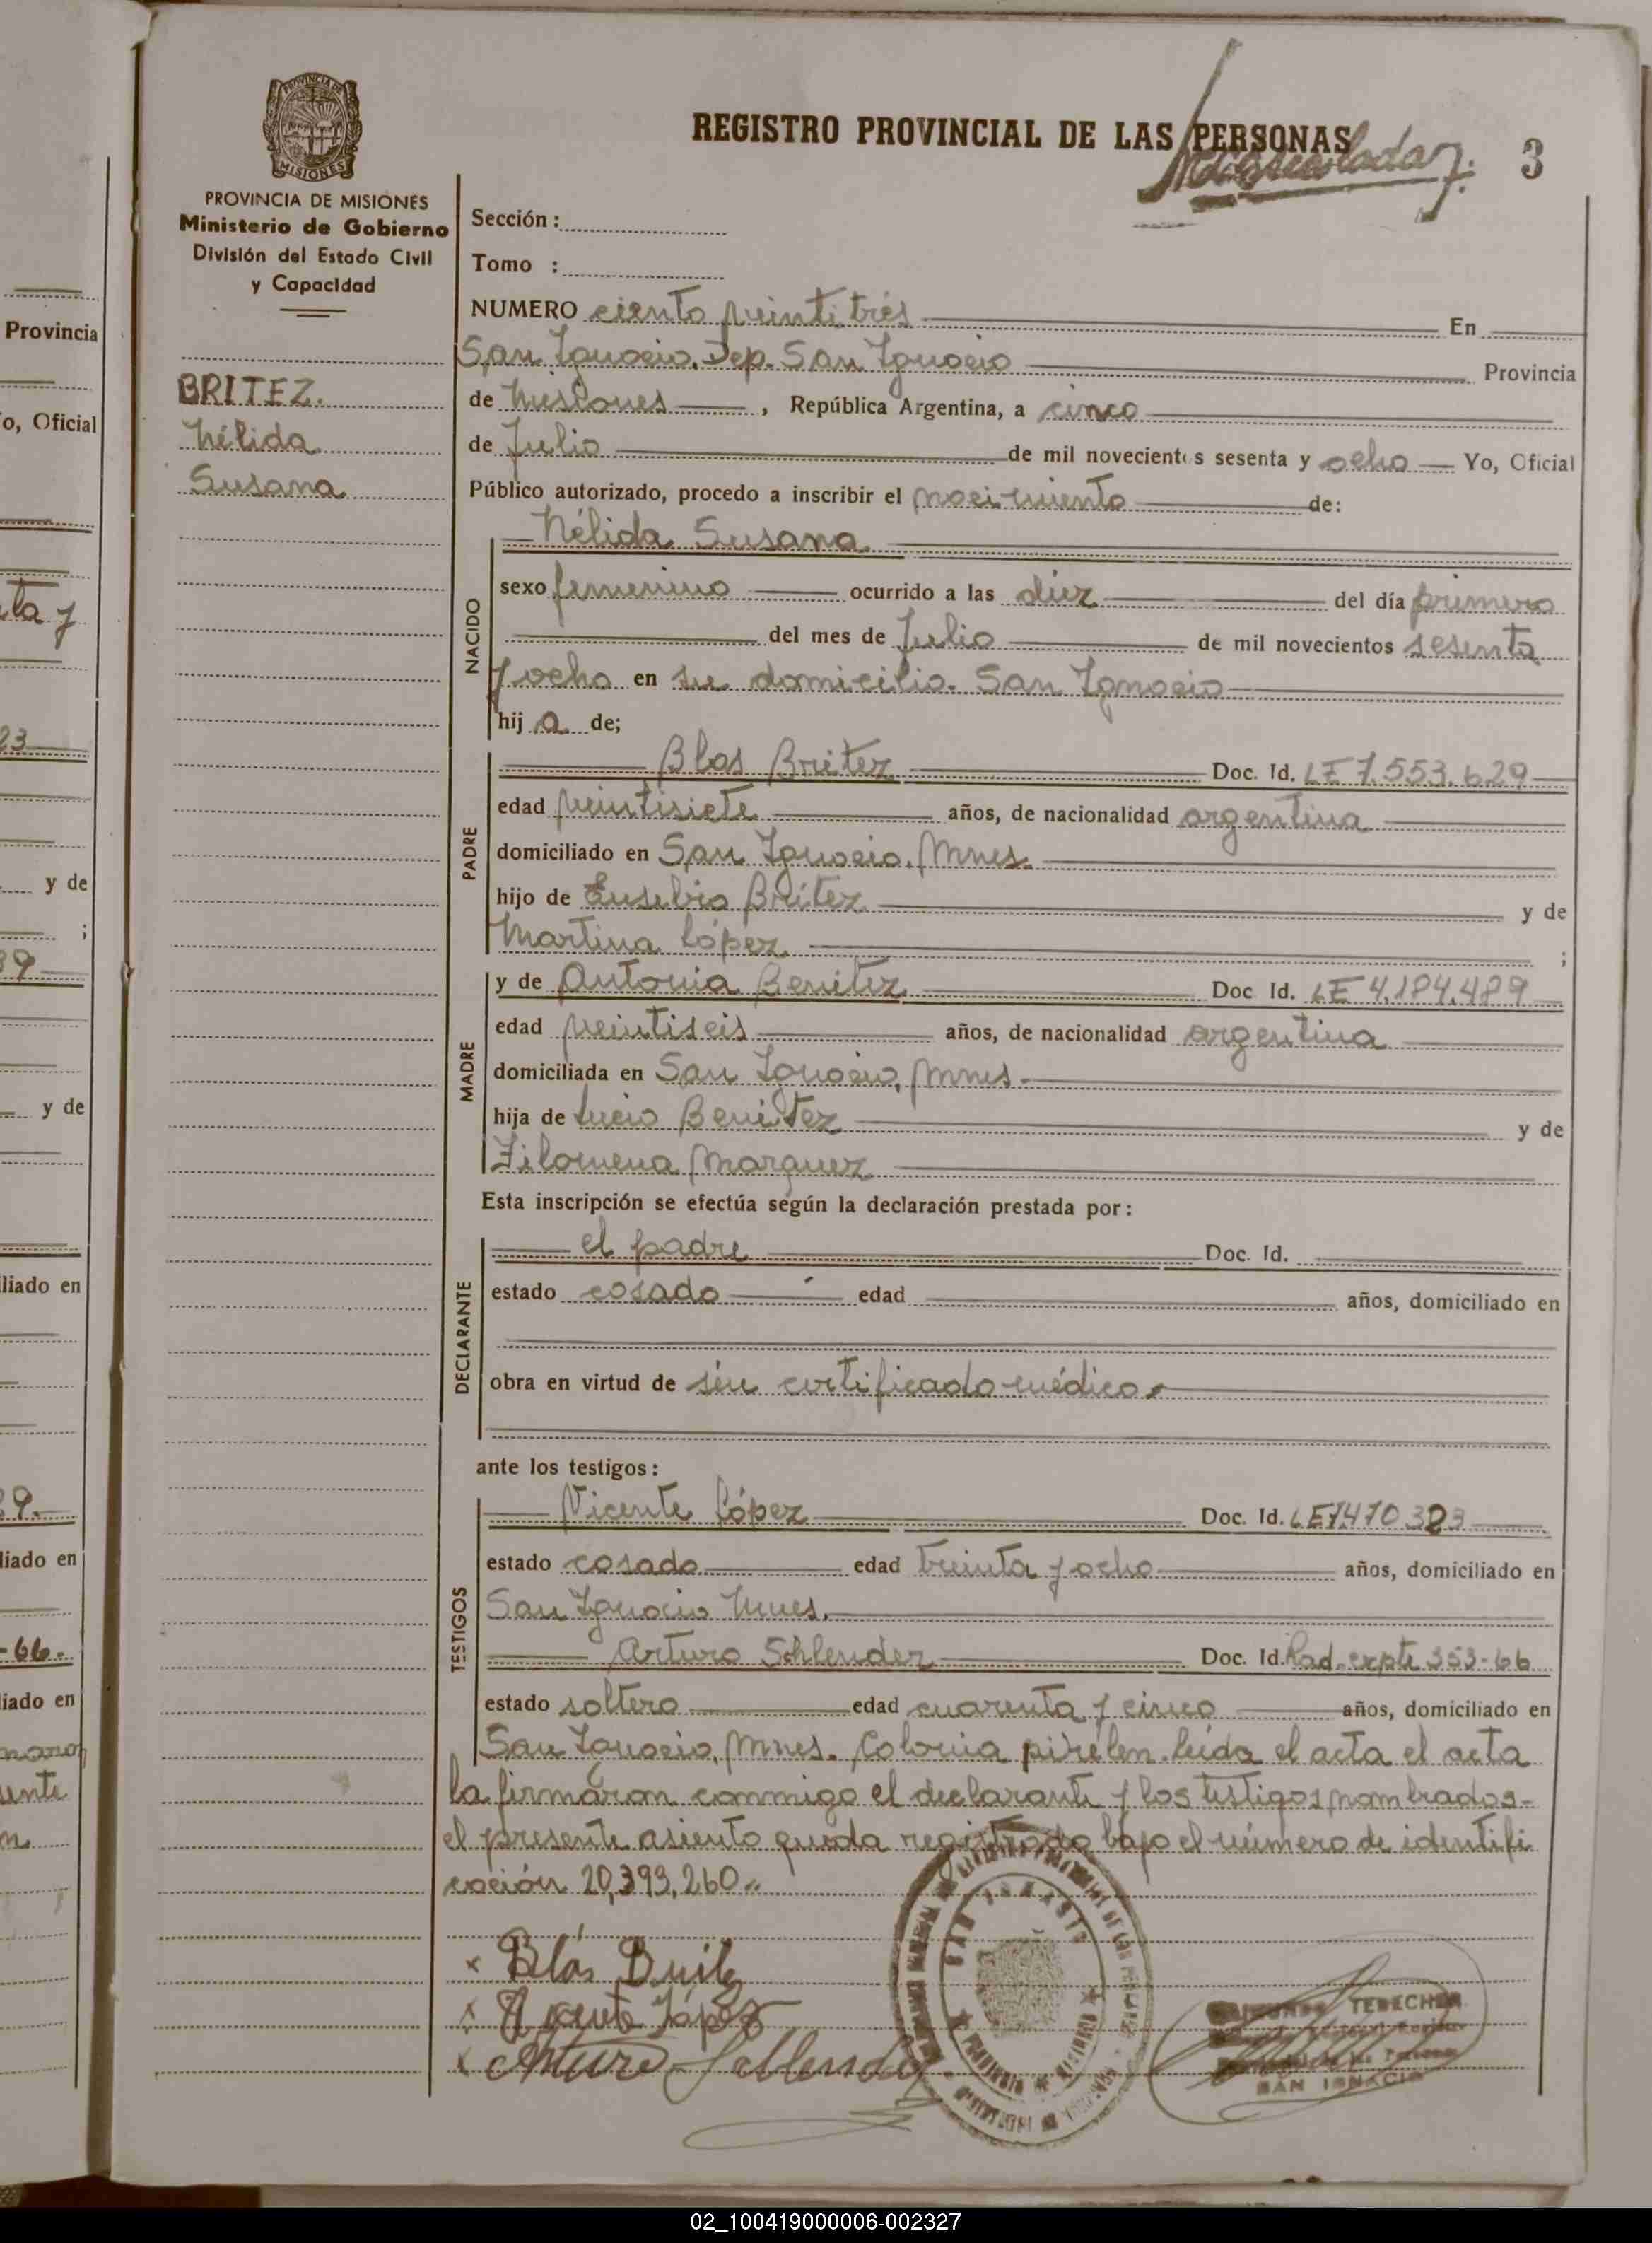 PROVINCIA DE
MISIONES
PROVINCIA DE MISIONES
Ministerio de Gobierno
División del Estado Civil
y Capacidad
BRITEZ.
Nélida
Susana
REGISTRO PROVINCIAL DE LAS PERSONAS
3
Sección :
Tomo :
NUMERO ciento veinti trés En
San Ignacio. Dep. San Ignacio Provincia
de Misiones , República Argentina, a cinco
de Julio de mil novecientos sesenta y ocho Yo, Oficial
Público autorizado, procedo a inscribir el nacimiento de:
Nélida Susana
NACIDO
sexo femenino ocurrido a las diez del día primero
del mes de Julio de mil novecientos sesenta
y ocho en su domicilio. San Ignacio
hij a de;
PADRE
Blas Britez Doc. Id. LE 7.553.629
edad veintisiete años, de nacionalidad argentina
domiciliado en San Ignacio. Mnes.
hijo de Eusebio Britez y de
Martina López ;
MADRE
y de Antonia Benitez Doc Id. LE 4.184.489
edad veintiseis años, de nacionalidad argentina
domiciliada en San Ignacio, Mnes.
hija de Lucio Benitez y de
Filomena Marquez
Esta inscripción se efectúa según la declaración prestada por:
DECLARANTE
el padre Doc. Id.
estado casado edad años, domiciliado en
obra en virtud de sin certificado médico.
ante los testigos:
TESTIGOS
Vicente López Doc. Id. LE 7.470 323
estado casado edad treinta y ocho años, domiciliado en
San Ignacio Mnes.
Arturo Schlender Doc. Id. Rad-expte 353-66
estado soltero edad cuarenta y cinco años, domiciliado en
San Ignacio, Mnes. Colonia pirélen. leída el acta el acta
la firmaron conmigo el declarante y los testigos nombrados-
el presente asiento queda registrado bajo el número de identifi
cación 20,393,260..
x Blás Britez
x Vicente López
x Arturo Schlender
SAN IGNACIO
TERECHEN
SAN IGNACIO
Provincia
o, Oficial
ta y
23
y de
;
39
y de
liado en
9.
liado en
-66.
liado en
ente
02_100419000006-002327